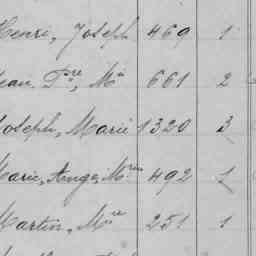 Henri, Joseph 469 1
Jean, Pre, Mie 661 2
Joseph, Marie 1320 3
Marie, Ange, Mrin 492 1
Martin, Mie 251 1